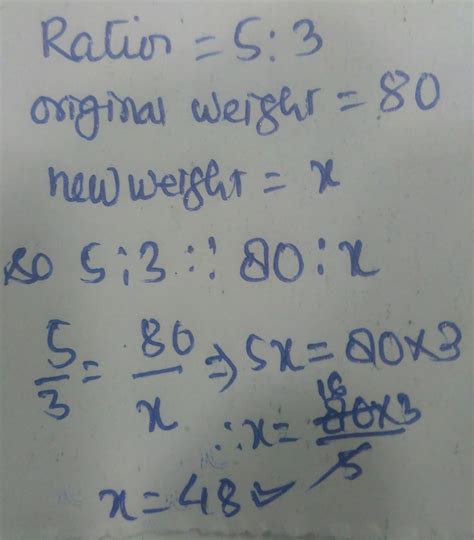 Ratior = 5:3
original weight = 80
new weight = x
so 5:3 :: 80:x
5/3 = 80/x ⇒ 5x = 80×3
∴ x = 80×3/5 16
x = 48 ✓